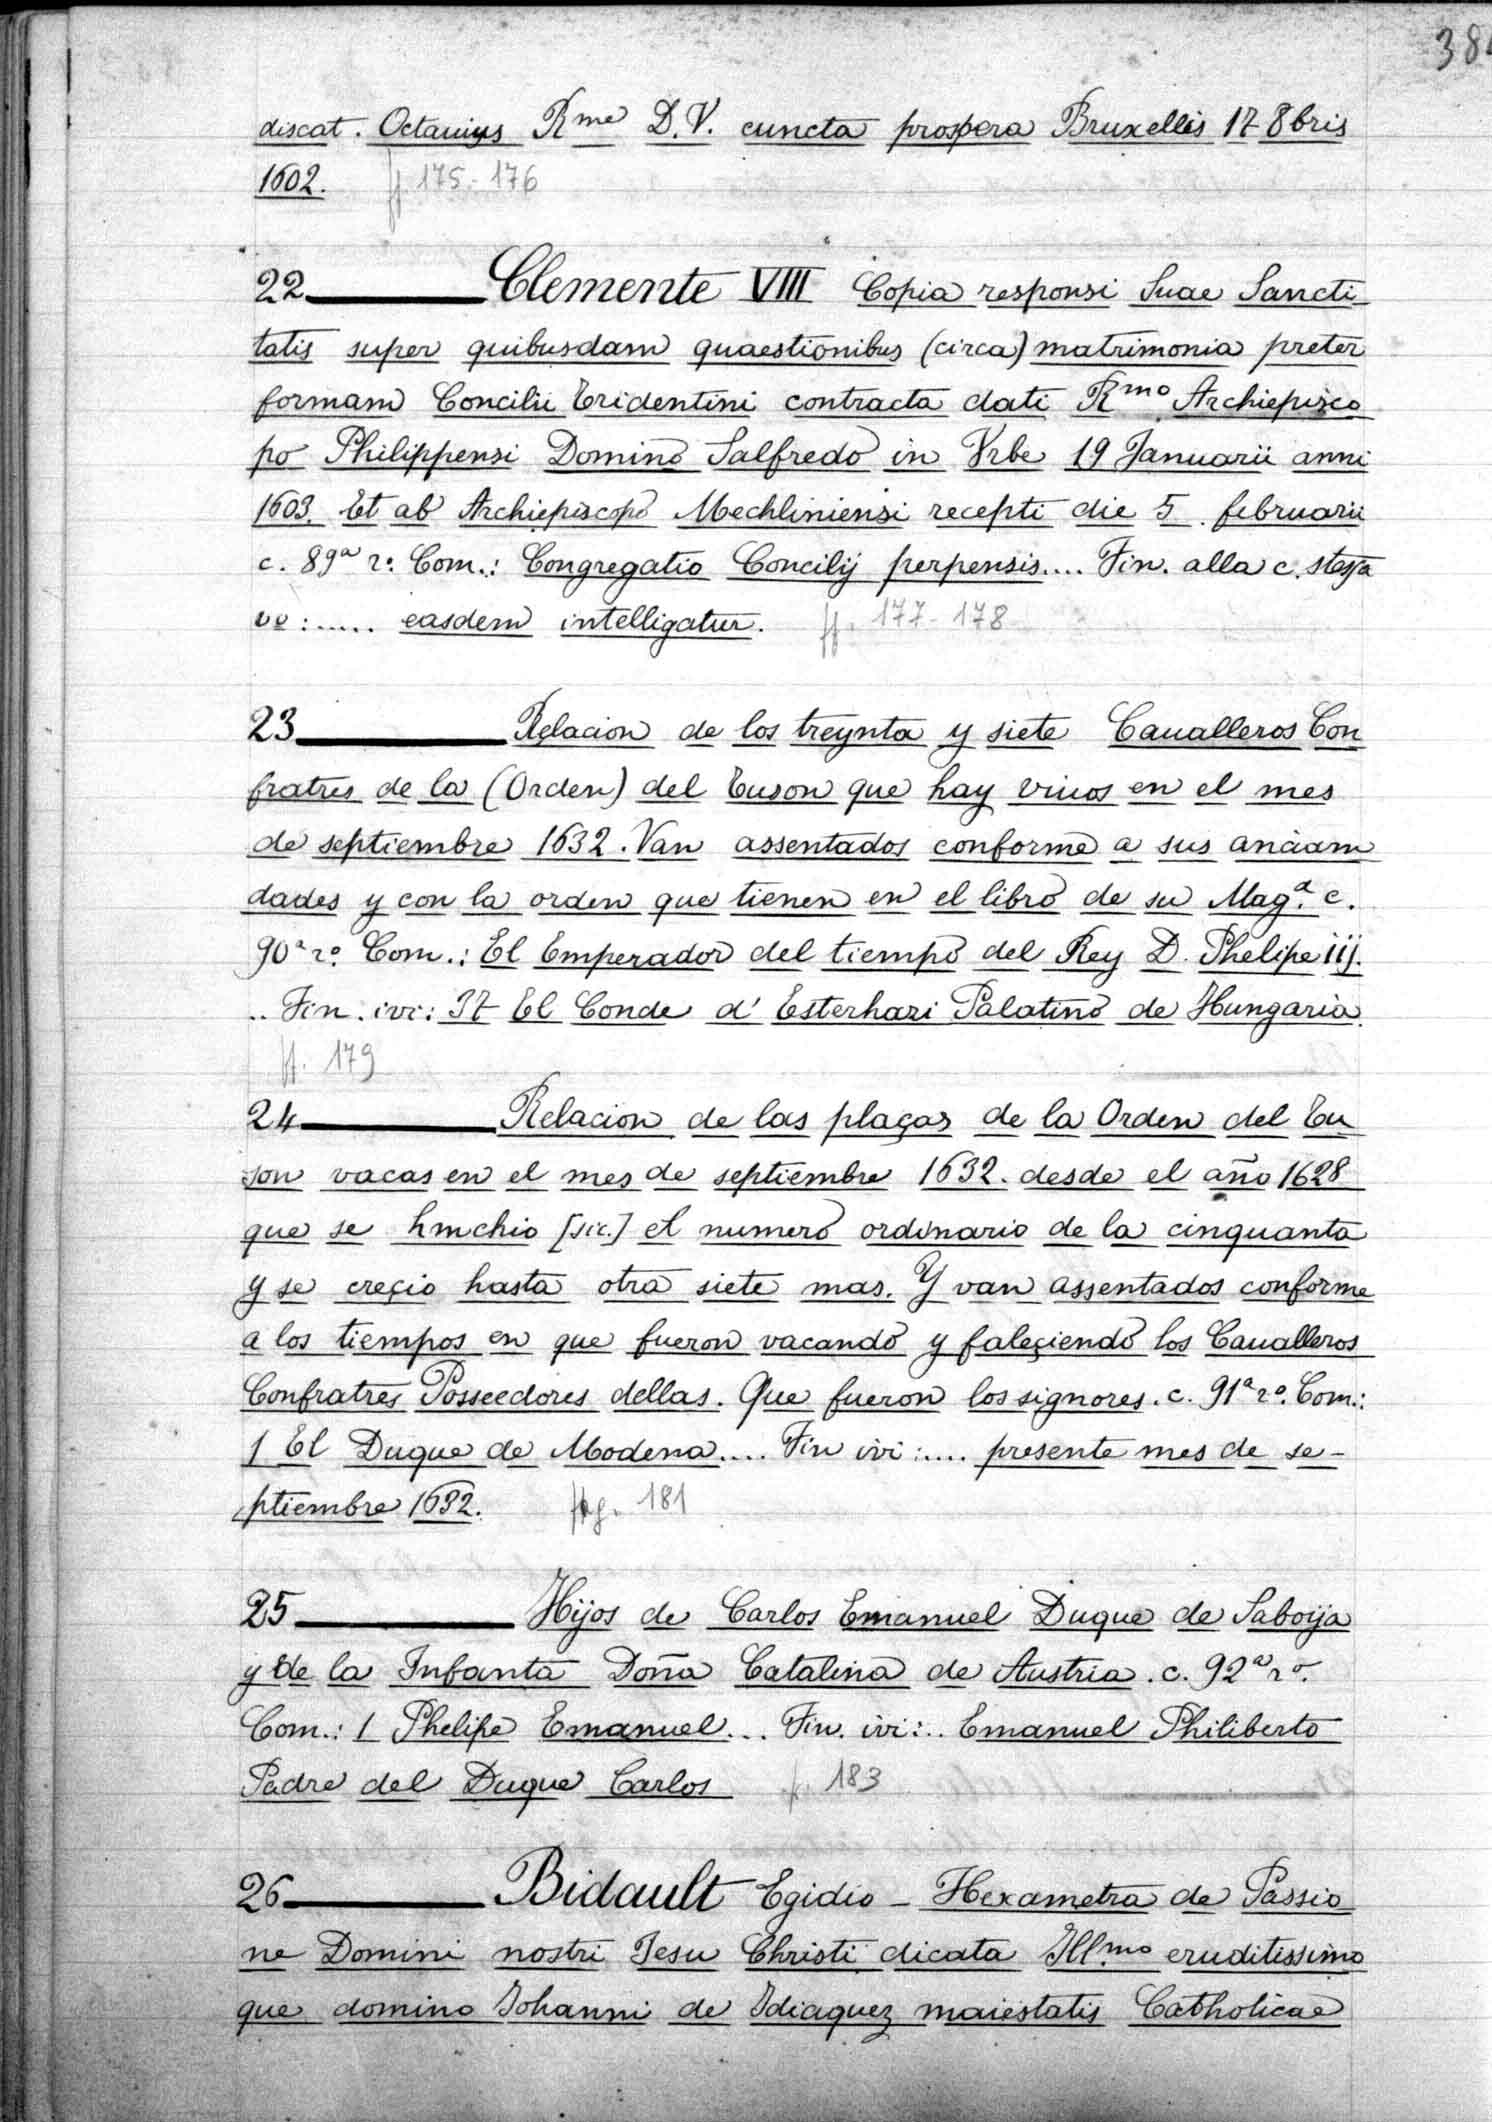 discat. Octauius Rme D.V. cuncta prospera Bruxellis 17 8bris
1602. ff 175-176
22 Clemente VIII Copia responsi Suae Sancti-
tatis super quibusdam quaestionibus (circa) matrimonia preter
formam Concilii Tridentini contracta dati Rmo Archiepisco
po Philippensi Domino Salfredo in Vrbe 19 Januarii anni
1603. Et ab Archiepiscopo Mechliniensi recepti die 5 februarii
c. 89a ro. Com.: Congregatio Concilij perpensis.... Fin. alla c. stessa
vo:..... easdem intelligatur. ff. 177-178
23 Relacion de los treynta y siete Caualleros Con
fratres de la (Orden) del Tuson que hay viuos en el mes
de septiembre 1632. Van assentados conforme a sus anciam
dades y con la orden que tienen en el libro de su Mag.d c.
90a ro. Com.: El Emperador del tiempo del Rey D. Phelipe iij.
.. Fin. ivi: 37 El Conde d' Esterhazi Palatino de Hungaria.
ff. 179
24 Relacion de las plaças de la Orden del Tu
son vacas en el mes de septiembre 1632. desde el año 1628
que se hmchio [sic.] el numero ordinario de la cinquanta
y se creçio hasta otra siete mas. Y van assentados conforme
a los tiempos en que fueron vacando y faleçiendo los Caualleros
Confratres Posseedores dellas. Que fueron los signores. c. 91a ro. Com.:
1 El Duque de Modena.... Fin ivi:.... presente mes de se-
ptiembre 1632. 181
25 Hijos de Carlos Emanuel Duque de Saboija
y de la Infanta Doña Catalina de Austria. c. 92a ro.
Com.: 1 Phelipe Emanuel... Fin. ivi:.. Emanuel Philiberto
Padre del Duque Carlos 183
26 Bidault Egidio - Hexametra de Passio
ne Domini nostri Jesu Christi dicata Ill.mo eruditissimo
que domino Johanni de Idiaquez maiestatis Catholicae